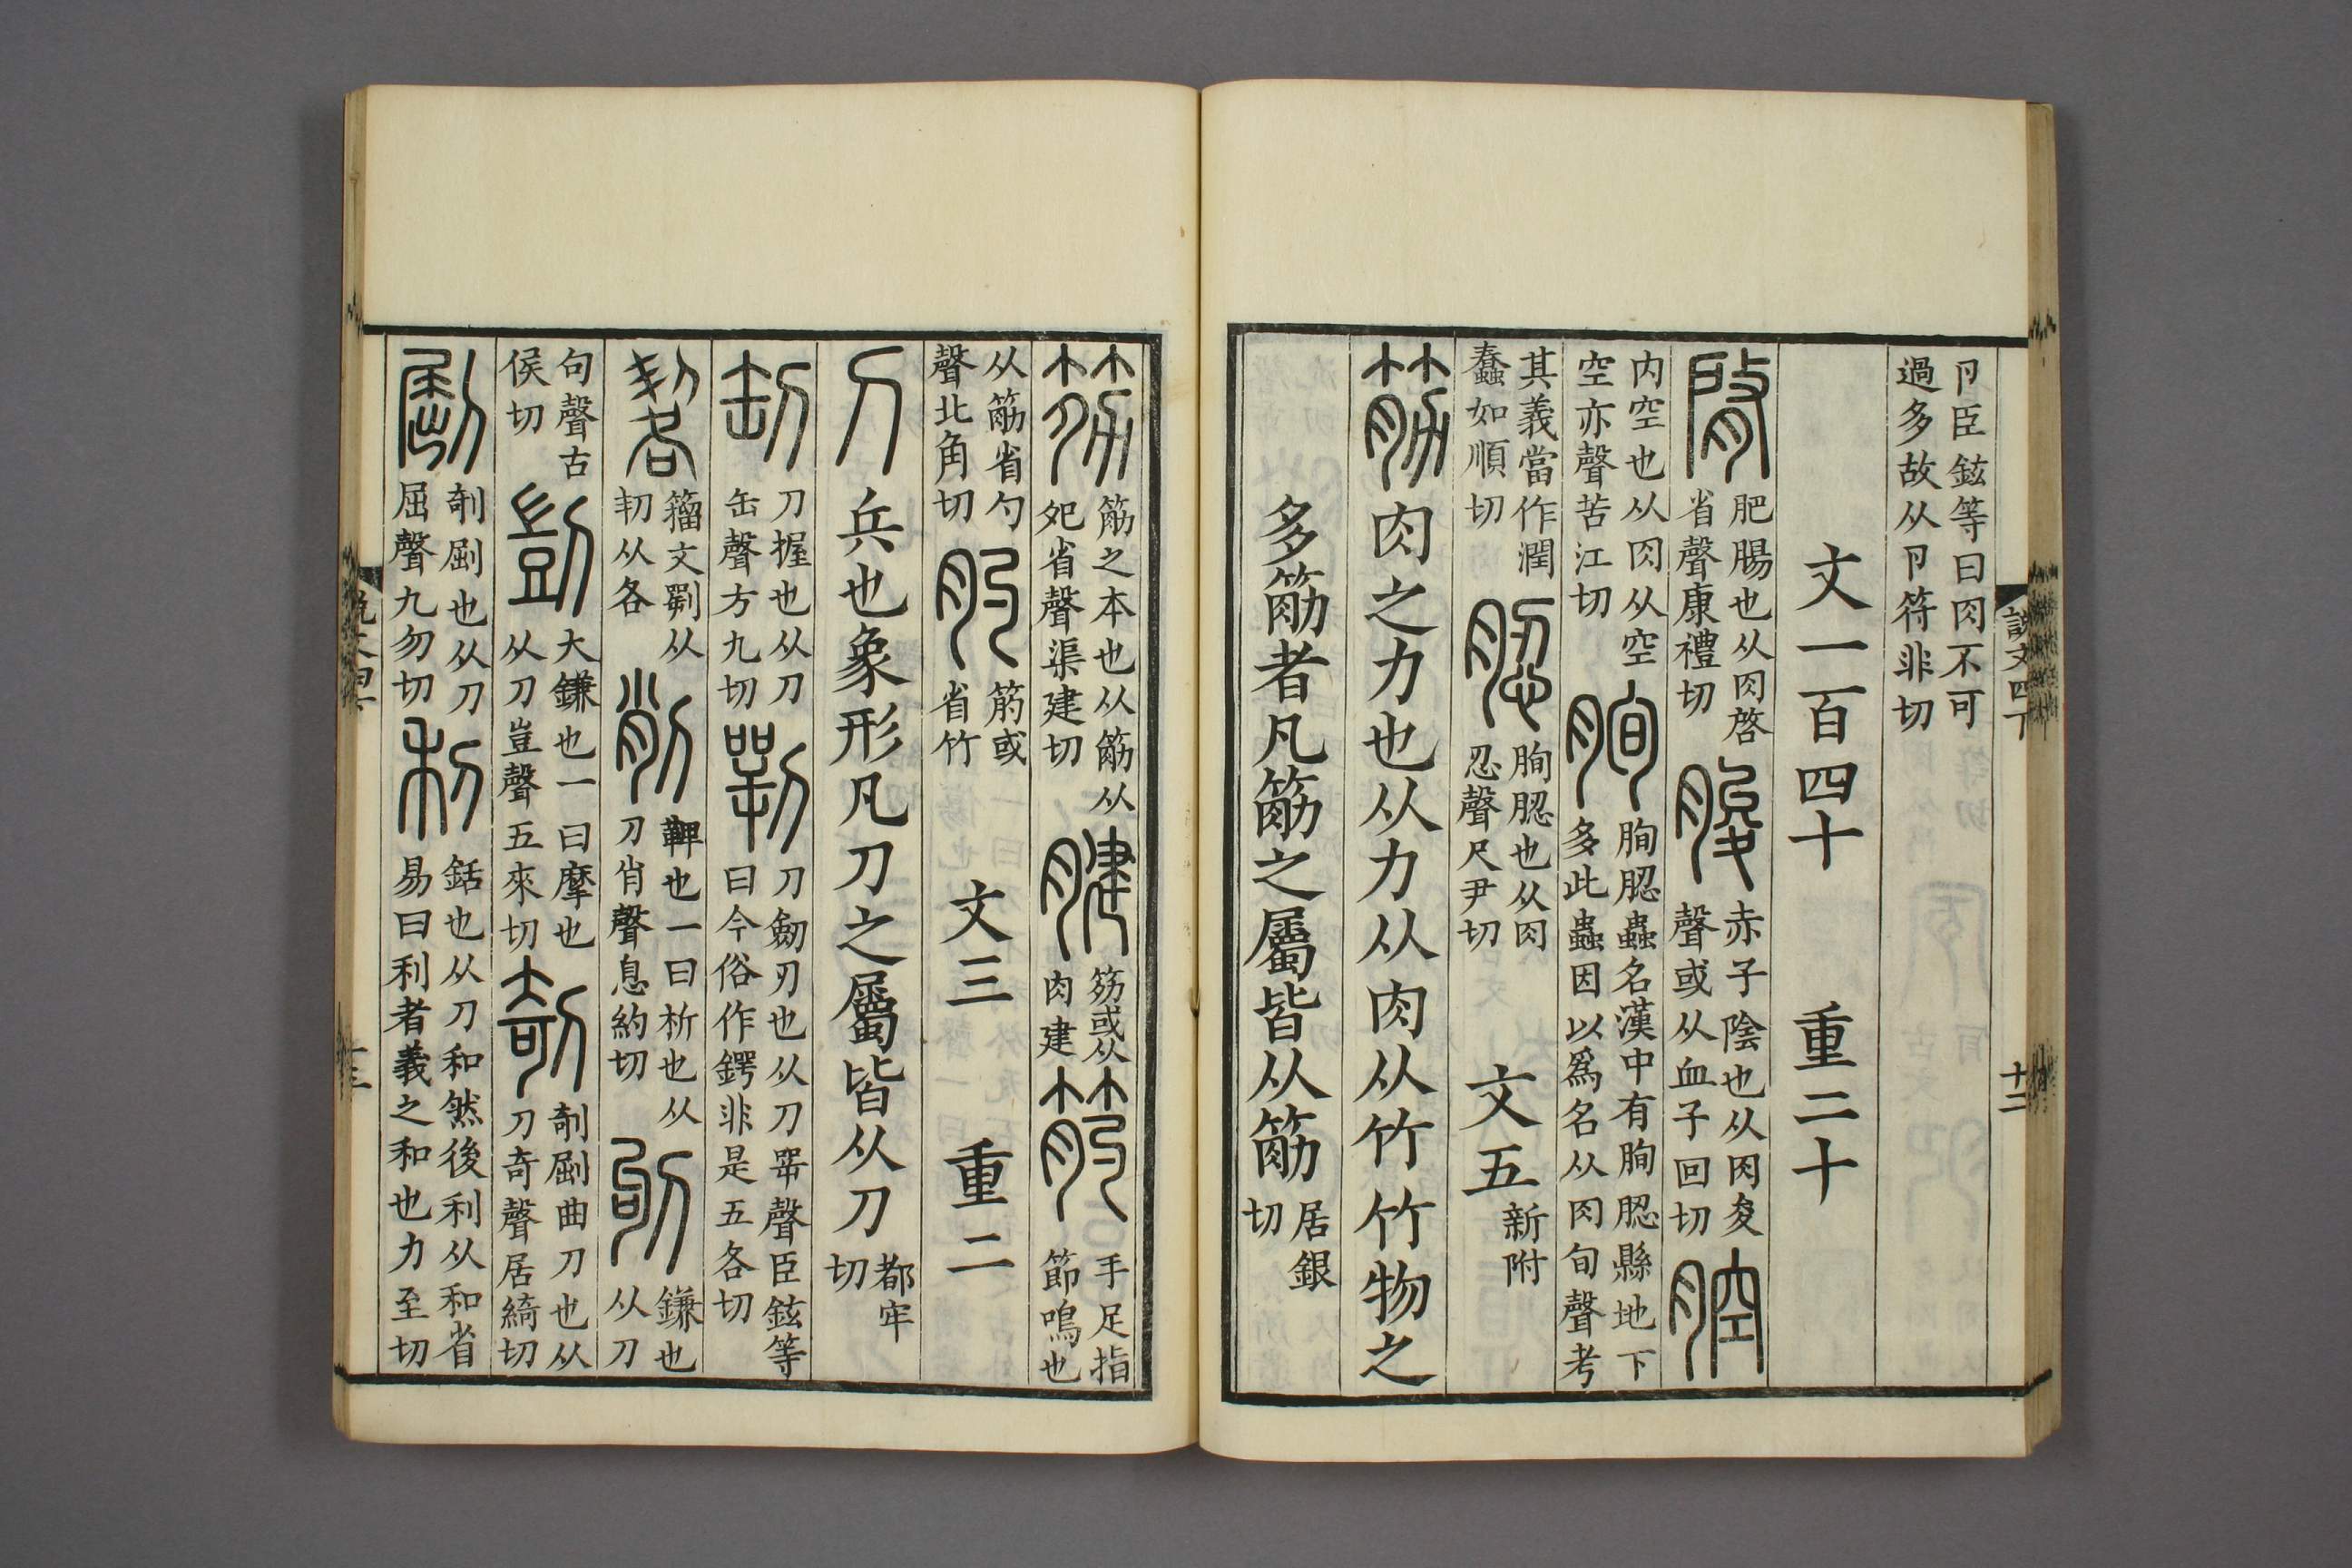 說文四下 十二
卪臣鉉等曰肉不可過多故从卪符非切
文一百四十 重二十
肥腸也从肉啓省聲康禮切 朘 赤子陰也从肉夋聲或从血子回切 腔
内空也从肉从空空亦聲苦江切 朐 朐䏰蟲名漢中有朐䏰縣地下多此蟲因以爲名从肉旬聲考
其義當作潤蠢如順切 䏰 朐䏰也从肉忍聲尺尹切 文五 新附
筋 肉之力也从力从肉从竹竹物之
多筋者凡筋之屬皆从筋 居銀切
筋之本也从筋从夗省聲渠建切 腱 䇔或从肉建 筋 手足指節鳴也
从筋省勺聲北角切 肑 筋或省竹 文三 重二
刀 兵也象形凡刀之屬皆从刀 都牢切
㓡 刀握也从刀缶聲方九切 㓵 刀劒刃也从刀㖾聲臣鉉等曰今俗作鍔非是五各切
籀文㓵从㓞从各 削 鞞也一曰析也从刀肖聲息約切 刏 鎌也从刀
句聲古侯切 剴 大鎌也一曰摩也从刀豈聲五來切 剞 剞劂曲刀也从刀奇聲居綺切
剞㔘也从刀屈聲九勿切 利 銛也从刀和然後利从和省易曰利者義之和也力至切
說文四下 十三